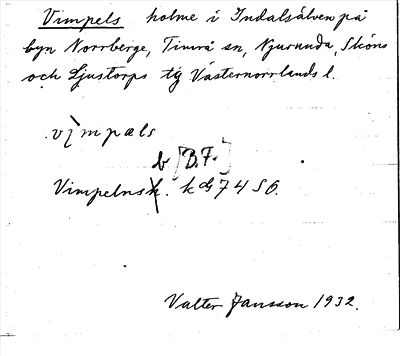 Vimpels holme i Indalsälven på
byn Norrberge, Timrå sn, Njurunda, Sköns
och Ljustorps tg Västernorrlands l.
vìmpæls
b [B.F.]
Vimpelnsk. k G 7456.
Valter Jansson 1932.